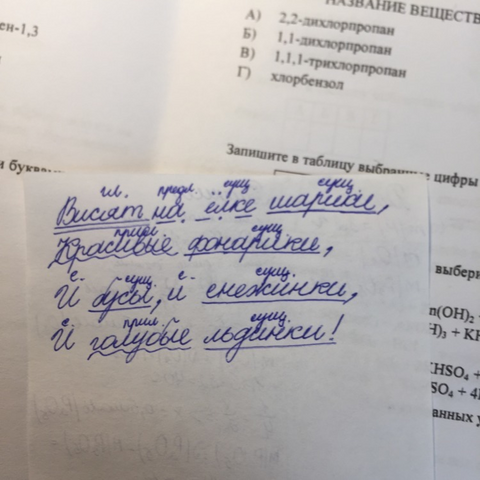 НАЗВАНИЕ ВЕЩЕСТВ
А) 2,2-дихлорпропан
Б) 1,1-дихлорпропан
В) 1,1,1-трихлорпропан
Г) хлорбензол
ен-1,3
Запишите в таблицу выбранные цифры
и буквами
гл. предл. сущ. сущ.
Висят на ёлке шарики,
прил. сущ.
Красивые фонарики,
с сущ. с сущ.
И бусы, и снежинки,
с прил. сущ.
И голубые льдинки!
выбери
n(OH)₂
H)₃ + KH
KHSO₄ +
SO₄ + 4
анных у